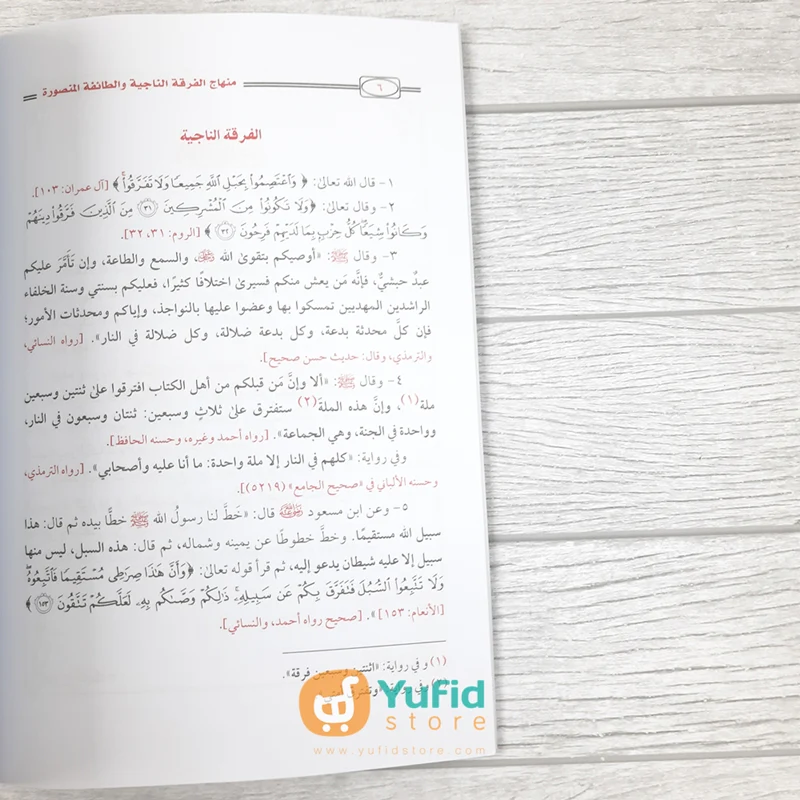 منهاج الفرقة الناجية والطائفة المنصورة
٦
الفرقة الناجية
١- قال الله تعالىٰ: ﴿ وَٱعْتَصِمُوا۟ بِحَبْلِ ٱللَّهِ جَمِيعًا وَلَا تَفَرَّقُوا۟ ﴾ [آل عمران: ١٠٣].
٢- وقال تعالىٰ: ﴿وَلَا تَكُونُوا۟ مِنَ ٱلْمُشْرِكِينَ ٣١ مِنَ ٱلَّذِينَ فَرَّقُوا۟ دِينَهُمْ
وَكَانُوا۟ شِيَعًا كُلُّ حِزْبٍۭ بِمَا لَدَيْهِمْ فَرِحُونَ ٣٢ ﴾ [الروم: ٣١، ٣٢].
٣- وقال ﷺ: «أوصيكم بتقوىٰ الله ﷻ، والسمع والطاعة، وإن تَأَمَّرَ عليكم
عبدٌ حبشيٌّ، فإنَّه مَن يعش منكم فسيرىٰ اختلافًا كثيرًا، فعليكم بسنتي وسنة الخلفاء
الراشدين المهديين تمسكوا بها وعضوا عليها بالنواجذ، وإياكم ومحدثات الأمور؛
فإن كلَّ محدثة بدعة، وكل بدعة ضلالة، وكل ضلالة في النار». [رواه النسائي،
والترمذي، وقال: حديث حسن صحيح].
٤- وقال ﷺ: «ألا وإنَّ مَن قبلكم من أهل الكتاب افترقوا علىٰ ثنتين وسبعين
ملة(١)، وإنَّ هذه الملة(٢) ستفترق علىٰ ثلاثٍ وسبعين: ثنتان وسبعون في النار،
وواحدة في الجنة، وهي الجماعة». [رواه أحمد وغيره، وحسنه الحافظ].
وفي رواية: «كلهم في النار إلا ملة واحدة: ما أنا عليه وأصحابي». [رواه الترمذي،
وحسنه الألباني في «صحيح الجامع» (٥٢١٩)].
٥- وعن ابن مسعود رضي الله عنه قال: «خَطَّ لنا رسولُ الله ﷺ خطًّا بيده ثم قال: هذا
سبيل الله مستقيمًا. وخطَّ خطوطًا عن يمينه وشماله، ثم قال: هذه السبل، ليس منها
سبيل إلا عليه شيطان يدعو إليه، ثم قرأ قوله تعالىٰ: ﴿وَأَنَّ هَٰذَا صِرَٰطِى مُسْتَقِيمًا فَٱتَّبِعُوهُ
وَلَا تَتَّبِعُوا۟ ٱلسُّبُلَ فَتَفَرَّقَ بِكُمْ عَن سَبِيلِهِۦ ذَٰلِكُمْ وَصَّىٰكُم بِهِۦ لَعَلَّكُمْ تَتَّقُونَ ١٥٣ ﴾
[الأنعام: ١٥٣]». [صحيح رواه أحمد، والنسائي].
(١) وفي رواية: «اثنتين وسبعين فرقة».
وفي رواية: «وتفترق
Yufid
store
www.yufidstore.com